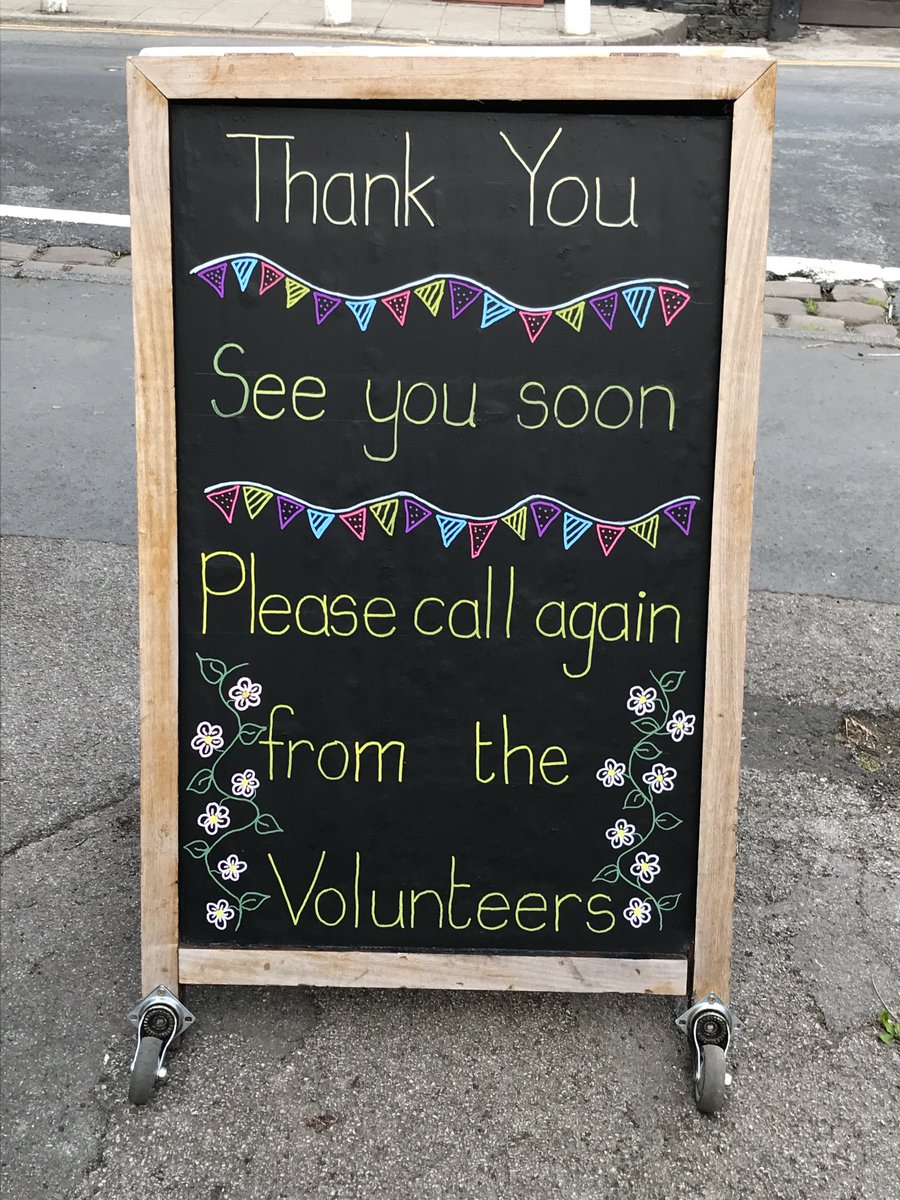 Thank You
See you soon
Please call again
from the
Volunteers